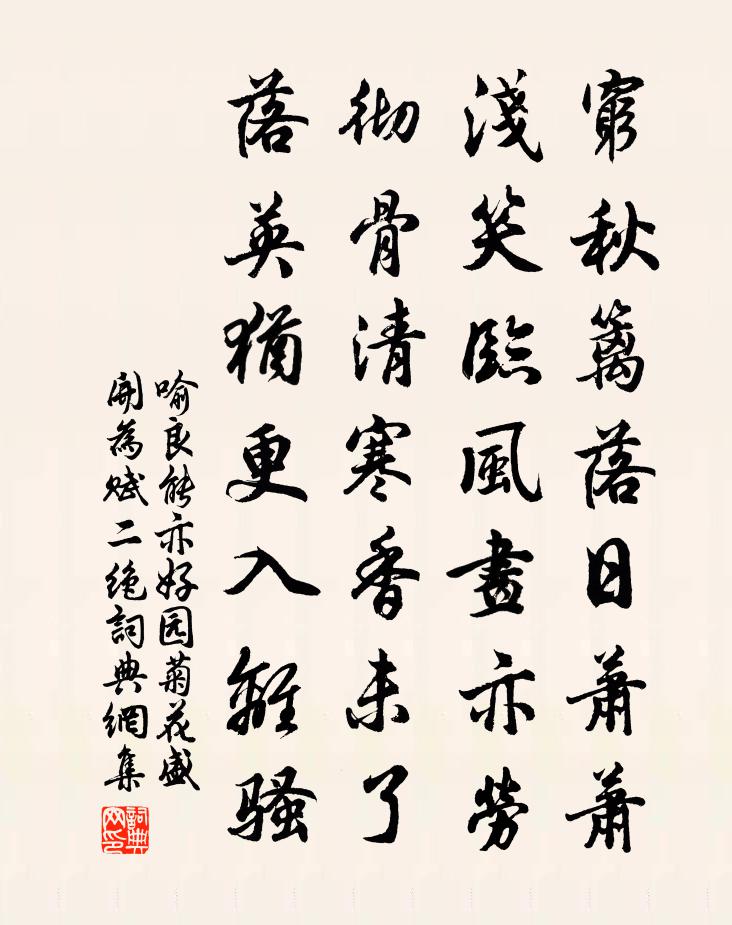 窮秋籬落日蕭蕭
淺笑臨風畫亦勞
徹骨清寒香未了
落英猶更入離騷
喻良能亦好园菊花盛
開為赋二絶詞典網集
詞典